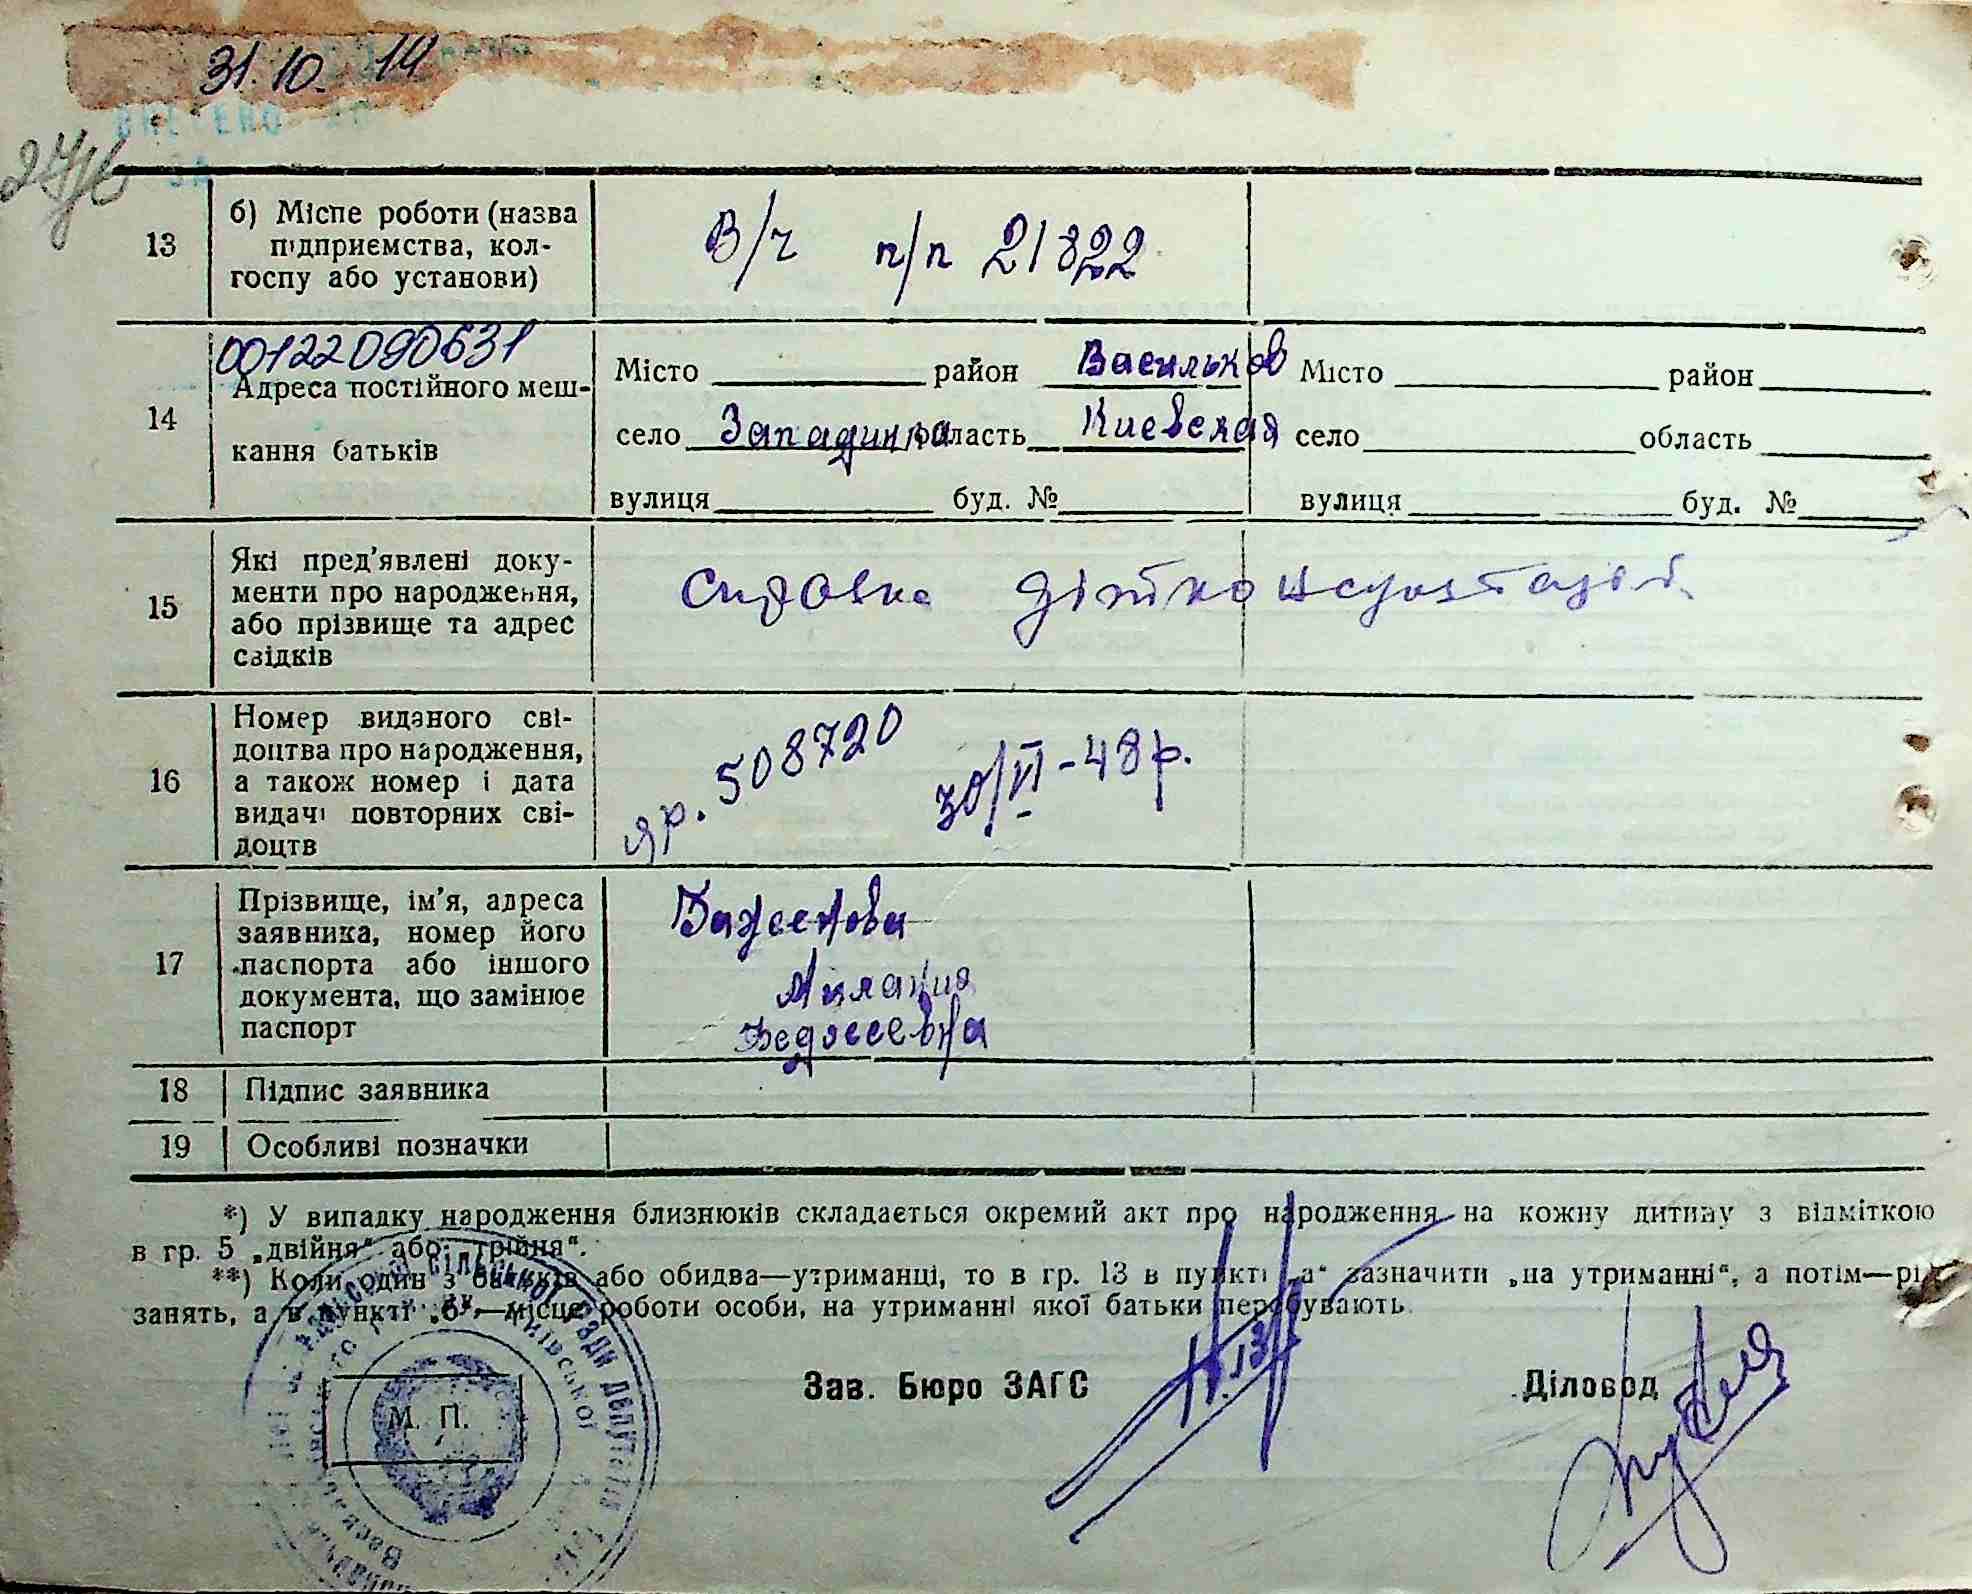 31.10.14
ВНЕСЕНО ДО
13
б) Місце роботи (назва
підприємства, кол-
госпу або установи)
В/ч п/п 21822
14
00122090631
Адреса постійного меш-
кання батьків
Місто район Васильков
село Западинка область Киевская
вулиця буд. №
Місто район
село область
вулиця буд. №
15
Які пред'явлені доку-
менти про народження,
або прізвище та адрес
свідків
Справка
16
Номер виданого сві-
доцтва про народження,
а також номер і дата
видачі повторних сві-
доцтв
яр. 508720 30/VI-48р.
17
Прізвище, ім'я, адреса
заявника, номер його
паспорта або іншого
документа, що замінює
паспорт
Баженова
18
Підпис заявника
19
Особливі позначки
*) У випадку народження близнюків складається окремий акт про народження на кожну дитину з відміткою
в гр. 5 „двійня“ або „трійня“.
**) Коли один з батьків або обидва—утриманці, то в гр. 13 в пункті „а“ зазначити „на утриманні“, а потім—рід
занять, а в пункті „б“—місце роботи особи, на утриманні якої батьки перебувають.
М. П.
Зав. Бюро ЗАГС
Діловод